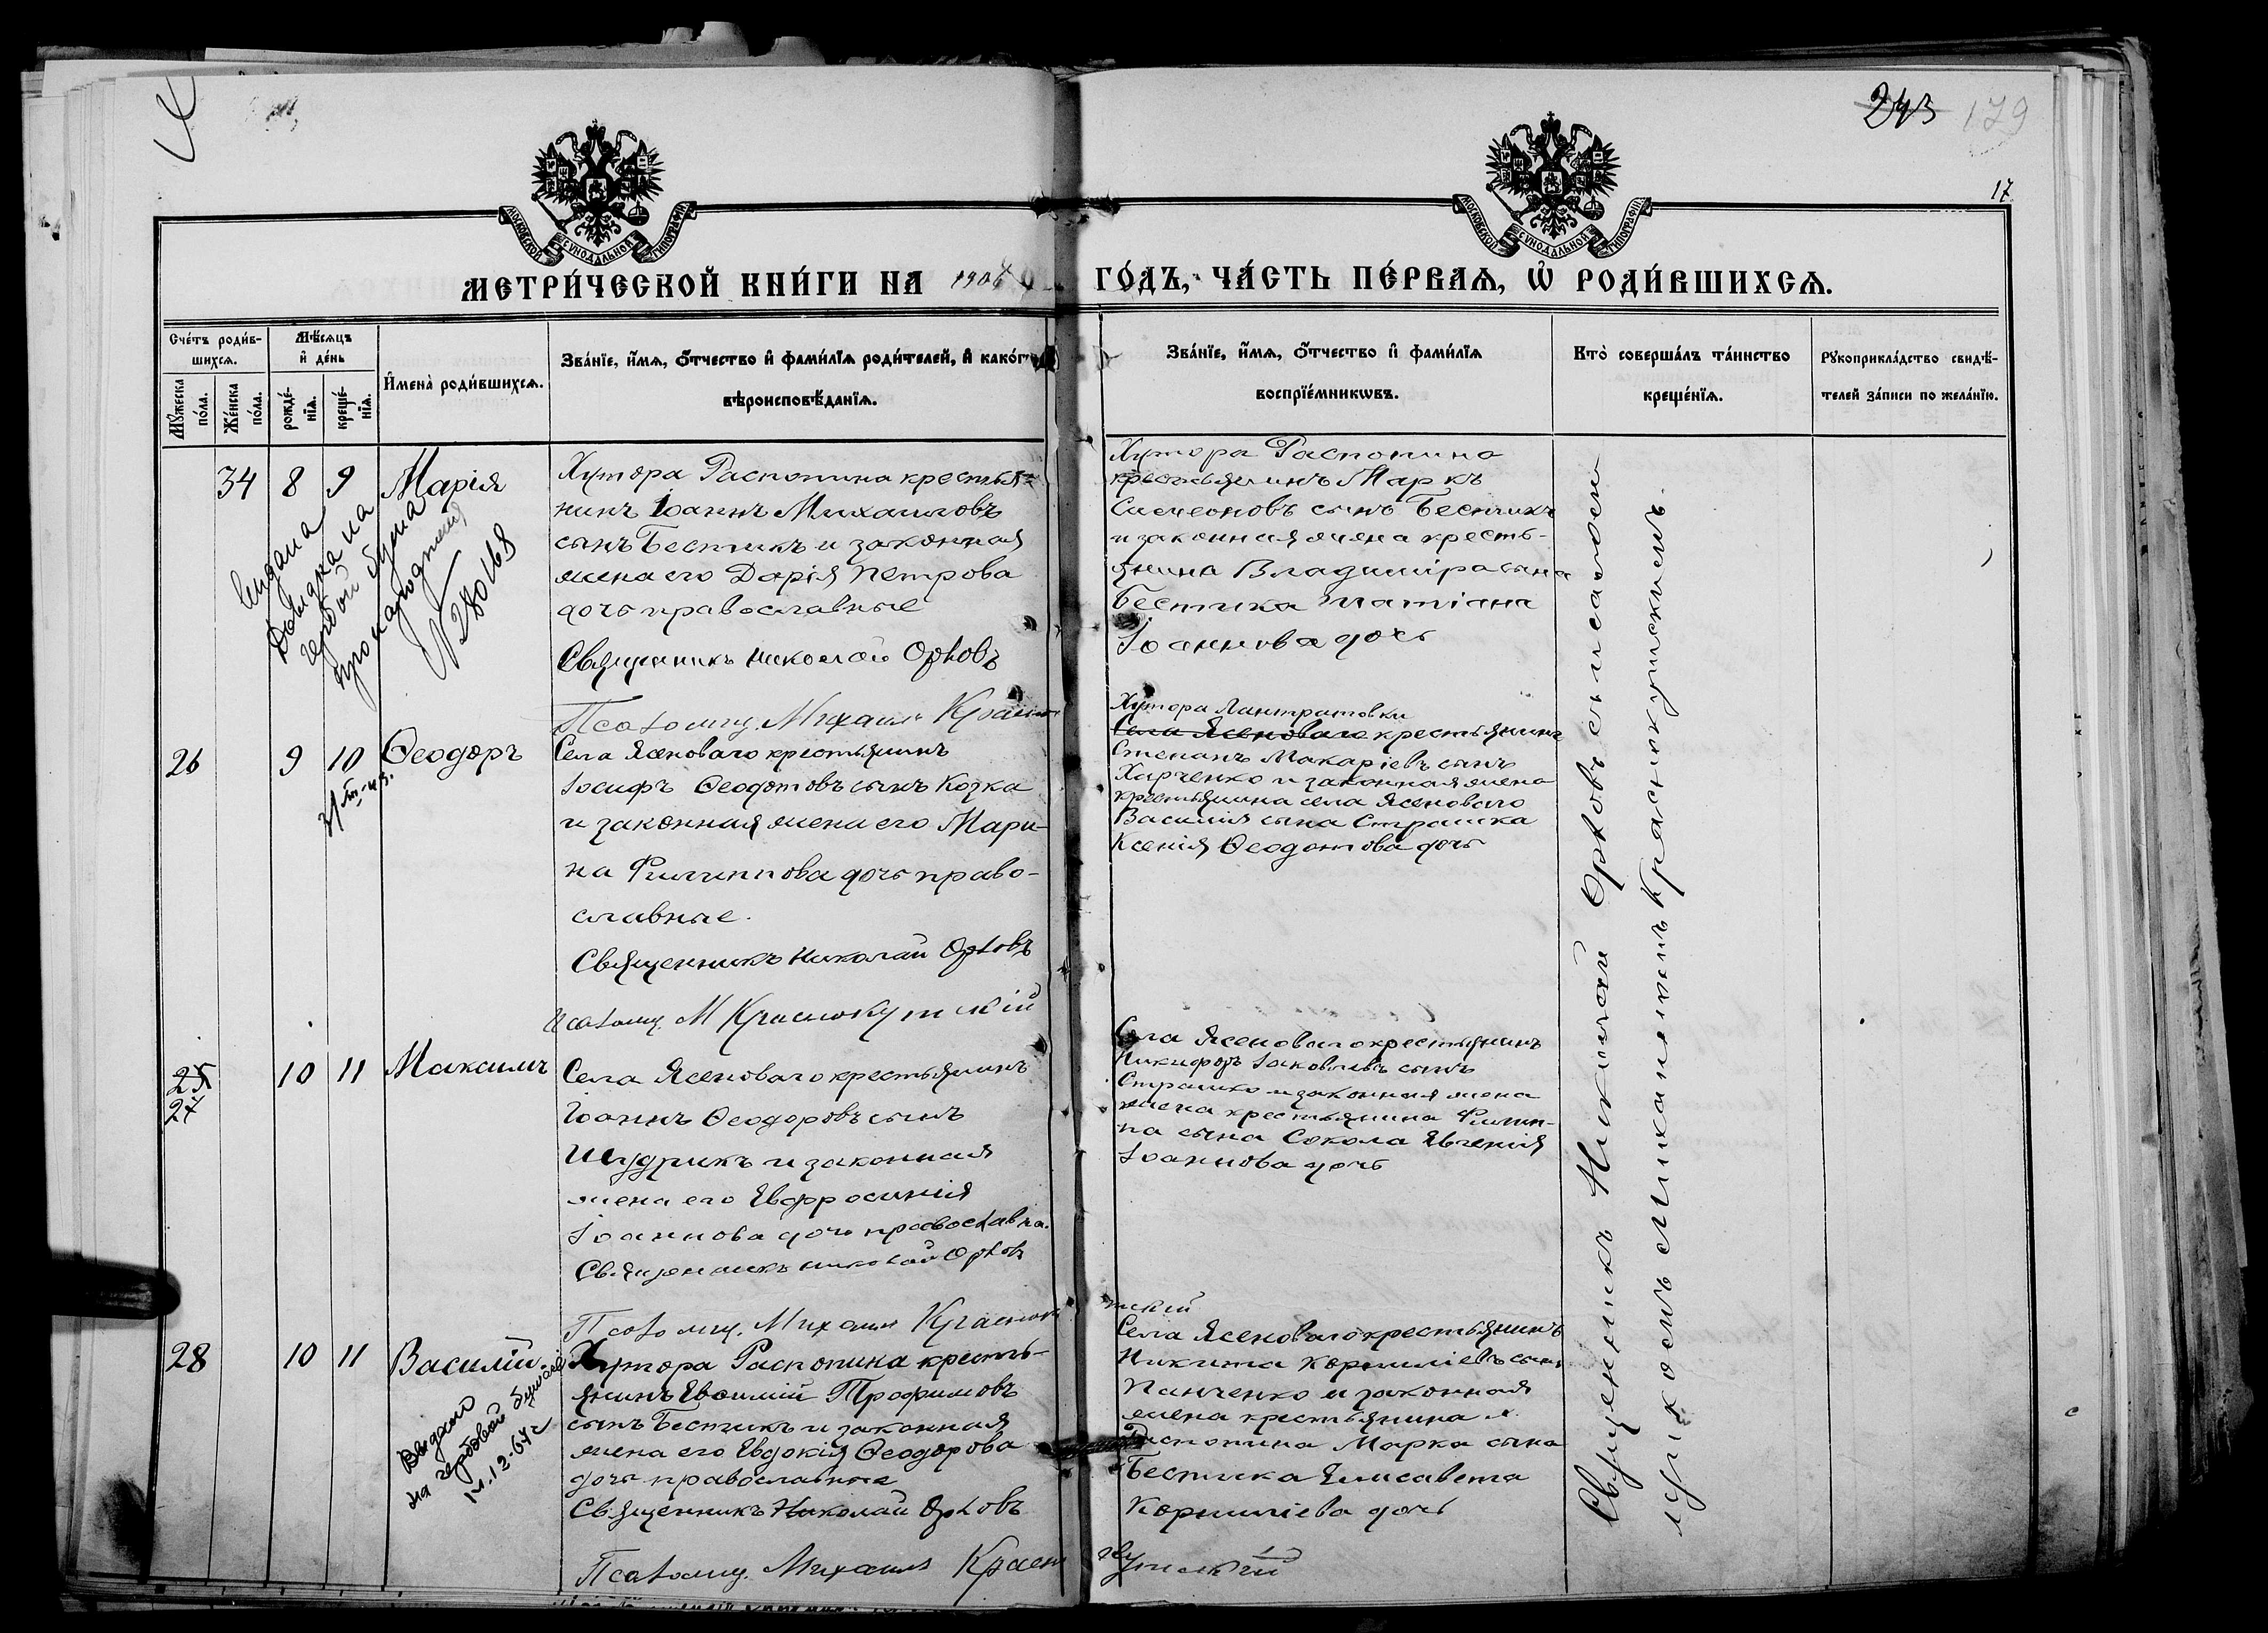 243 179
17
МОСКОВСКОЙ СУНОДАЛЬНОЙ ТИПОГРАФІИ
МОСКОВСКОЙ СУНОДАЛЬНОЙ ТИПОГРАФІИ
МЕТРИ́ЧЕСКОЙ КНИ́ГИ НА 190 ГО́ДЪ, ЧА́СТЬ ПЕ́РВАЯ, Ѡ РОДИ́ВШИХСЯ.
Сче́тъ роди́в-
шихся.
Мѣ́сяцъ
и҆ де́нь
Мꙋ́жеска
по́ла.
Же́нска
по́ла.
рожде́-
нїѧ.
креще́-
нїѧ.
И҆мена̀ роди́вшихсѧ.
Зва́нїе, и҆́мѧ, ѻ҆́тчество и҆ фами́лїѧ роди́телей, и҆ како́г
вѣроисповѣ́данїѧ.
Зва́нїе, и҆́мѧ, ѻ҆́тчество и҆ фами́лїѧ
воспрїе́мникѡвъ.
Кто̀ соверша́лъ та́инство
креще́нїѧ.
Рꙋкоприкла́дство свидѣ́-
телей за́писи по жела́нїю.
34 8 9 Марія
Хутора Распопина крестья-
нинъ Іоаннъ Михаиловъ
сынъ Бестикъ и законная
жена его Дарія Петрова
дочь православные
Священникъ Николай Орловъ
Псаломщ. Михаилъ
Хутора Распопина
крестьянинъ Маркъ
Симеоновъ сынъ Бестикъ
и законная жена кресть-
янина Владиміра сына
Бестика Татіана
Іоаннова дочь
видана
довидка на
гербой бума
про народження
№ 280168
26 9 10 Ѳеодоръ
Села Ясеноваго крестьянинъ
Іосифъ Ѳеодотовъ сынъ Козка
и законная жена его Мари-
на Филиппова дочь право-
славные.
Священникъ Николай Орловъ
Псаломщ. М Краснокутскій
Хутора Лантратовки
Села Ясеноваго крестьянинъ
Степанъ Макаріевъ сынъ
Харченко и законная жена
крестьянина села Ясеноваго
Василія сына Страшка
Ксенія Ѳеодотова дочь
25
27
10 11 Максимъ
Села Ясеноваго крестьянинъ
Іоаннъ Ѳеодоровъ сынъ
Шудрикъ и законная
жена его Евфросинія
Іоаннова дочь православна.
Священникъ Николай Орловъ
Псаломщ. Михаилъ Красноку тскій
Села Ясеноваго крестьянинъ
Никифоръ Іаковлевъ сынъ
Страшко и законная жена
жена крестьянина Филип-
па сына Сокола Евгенія
Іоаннова дочь
28 10 11 Василій.
Хутора Распопина кресть-
янинъ Евѳимій Трофимовъ
сынъ Бестикъ и законная
жена его Евдокія Ѳеодорова
дочь православные
Священникъ Николай Орловъ
Псаломщ. Михаилъ Красно кутскій
Села Ясеноваго крестьянинъ
Никита Корниліевъ сынъ
Панченко и законная
жена крестьянина х.
Распопина Марка сына
Бестика Елисавета
Корниліева дочь
на гербовой бумаге
14.12.67 г
Священникъ Николай Орловъ съ псалом-
щикомъ Михаиломъ Краснокутскимъ.